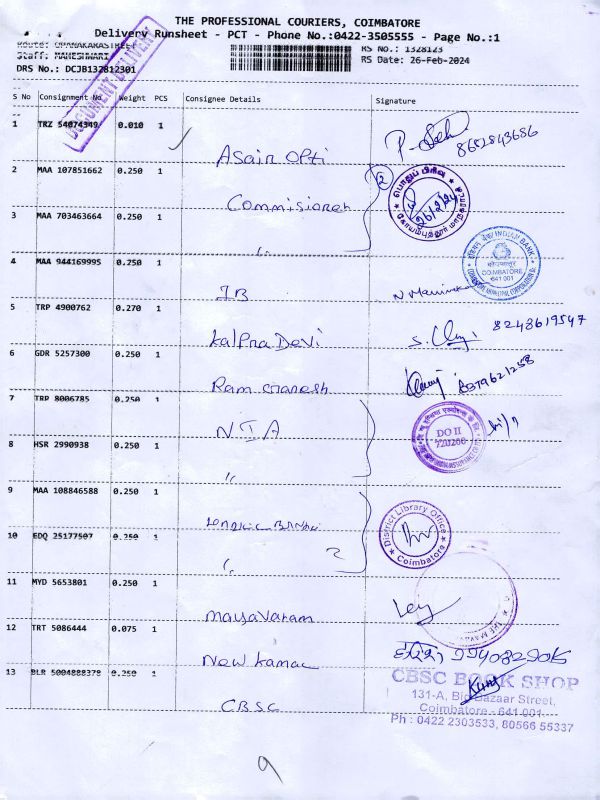 THE PROFESSIONAL COURIERS, COIMBATORE
Delivery Runsheet - PCT - Phone No.:0422-3505555 - Page No.:1
Route: CHANAKARASTREET
Staff: MAHESHWARI
DRS No.: DCJB132812301
RS No.: 1328123
RS Date: 26-Feb-2024
DOCUMENT DELIVERY
S No Consignment No Weight PCS Consignee Details Signature
1 TRZ 54074349 0.010 1
Asair Opti 8652843686
2 MAA 107851662 0.250 1
Commisioneh 2 பொதுப் பிரிவு 26/2/24
3 MAA 703463664 0.250 1
"
INDIAN BANK
COIMBATORE
641 001
4 MAA 944169995 0.250 1
IB
5 TRP 4900762 0.270 1
Kalpra Devi 8248619547
6 GDR 5257300 0.250 1
Ram Ganesh 8879621258
7 TRP 8006785 0.250 1
NIA
DO II
720200
8 HSR 2990938 0.250 1
"
9 MAA 108846588 0.250 1
District Library Office
Coimbatore
10 EDQ 25177507 0.250 1
2
11 MYD 5653801 0.250 1
mayavaram
12 TRT 5086444 0.075 1
New Kamal 9940829015
13 BLR 5004888378 0.250 1
CBSC
CBSC BOOK SHOP
131-A, Big Bazaar Street,
Coimbatore - 641 001
Ph : 0422 2303533, 80566 55337
9